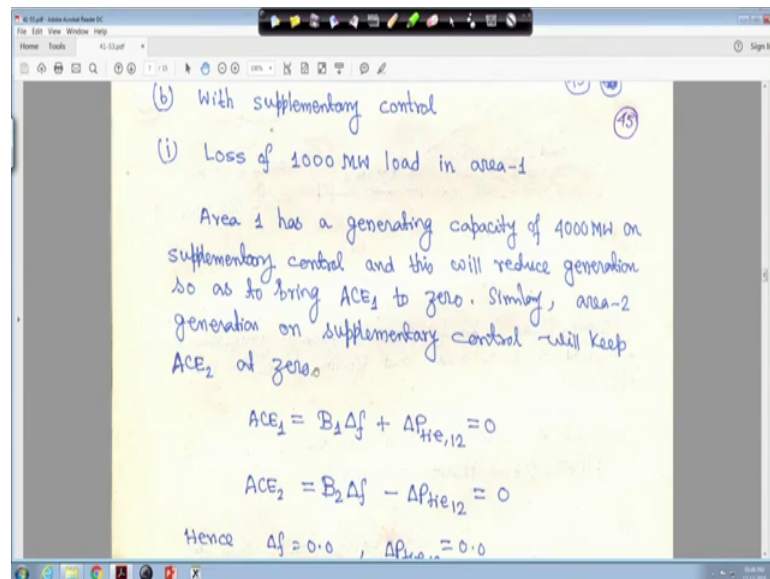 41-53.pdf - Adobe Acrobat Reader DC
File Edit View Window Help
Home Tools 41-53.pdf × Sign In
7 / 15
(b) With supplementary control
45
(i) Loss of 1000 MW load in area-1
Area 1 has a generating capacity of 4000 MW on
supplementary control and this will reduce generation
so as to bring ACE₁ to zero. Similary, area-2
generation on supplementary control will keep
ACE₂ at zero.
ACE₁ = B₁Δf + ΔP_tie,12 = 0
ACE₂ = B₂Δf - ΔP_tie,12 = 0
Hence Δf = 0.0 , = 0.0